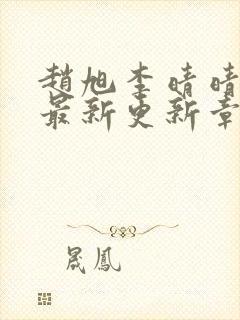 趙旭李晴晴
最新更新章
晟鳳